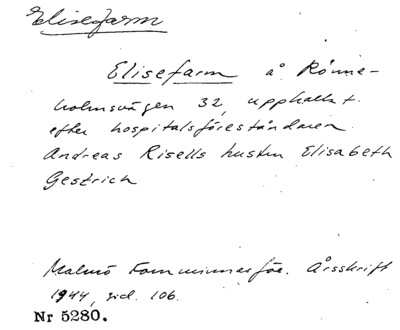 Elisefarm
Elisefarm å Rönne-
holmsvägen 32, uppkallat
efter hospitalsföreståndaren
Andreas Risells hustru Elisabeth
Gestrich
Malmö Fornminnesför. Årsskrift
1944, sid. 106.
Nr 5280.